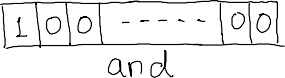 1 0 0 ------ 0 0
and